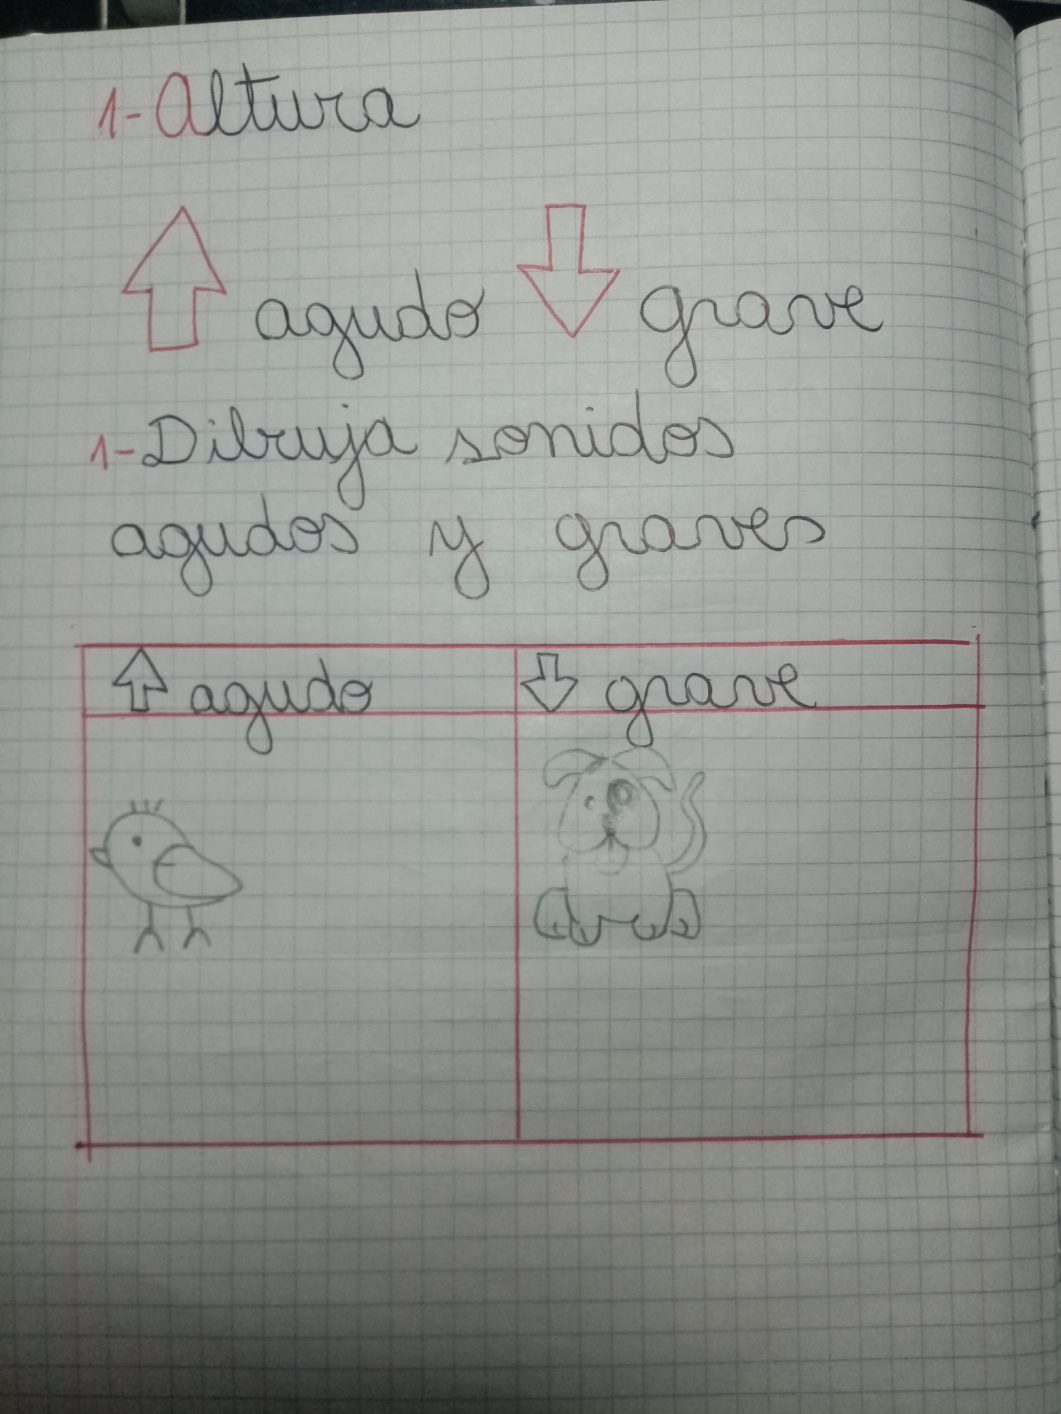 1-Altura
agudo grave
1-Dibuja sonidos
agudos y graves
agudo grave